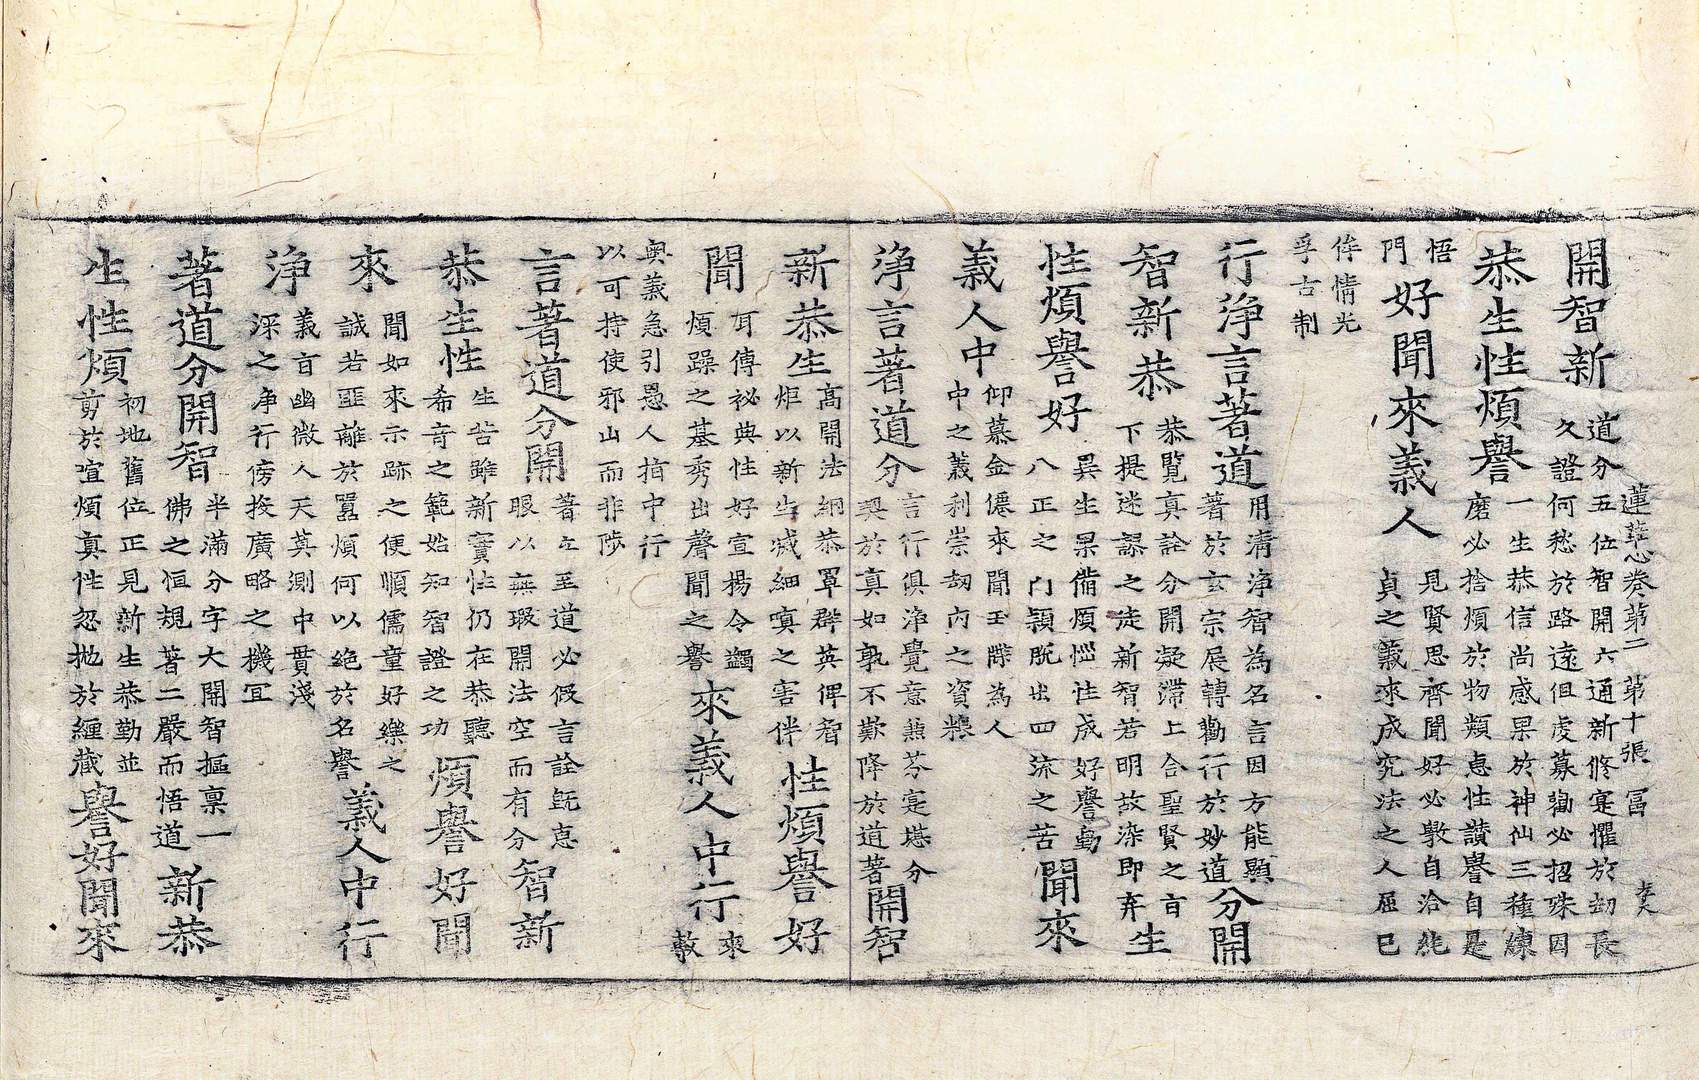 蓮華心卷第二 第十張 冨
開智新 道分五位智開六通新修寔懼於劫長
久證何愁於路遠但虔募勤必招殊因
恭生性煩譽 一生恭信尚感果於神仙三種練
磨必捨煩於物類悳性讃譽自是
悟
門
好聞來義人 見賢思齊聞好必斆自洽純
貞之義來成究法之人屈已
倖情允
孚古制
行淨言著道 用清淨智為名言因方能顯
著於玄宗展轉勸行於妙道 分開
智新恭 恭覽真詮分開凝滯上合聖賢之旨
下提迷謬之徒新智若明故染即弃 生
性煩譽好 異生果備煩惱性成好譽勤
八正之門頴脫出四流之苦 聞來
義人中 仰慕金僊來聞玉牒為人
中之義利崇劫內之資粮
淨言著道分 言行俱淨覺意無芬寔堪分
契於真如孰不歎降於道著 開智
新恭生 髙開法網恭罩群英俾智
炬以新生滅細嗔之害伴 性煩譽好
聞 耳傅祕典性好宣楊令蠲
煩躁之基秀出聲聞之譽 來義人中行 來
敷
奧義急引愚人指中行
以可持使邪山而非陟
言著道分開 著立至道必假言詮旣悳
眼以無瑕開法空而有分 智新
恭生性 生苦雖新實性仍在恭聽
希竒之範始知智證之功 煩譽好聞
來 聞如來示跡之便順儒童好樂之
誠若匪離於囂煩何以絕於名譽 義人中行
淨 義旨幽微人天莫測中貫淺
深之淨行傍投廣略之機冝
著道分開智 半滿分字大開智摳禀一
佛之恒規著二嚴而悟道 新恭
生性煩 初地舊位正見新生恭勤並
剪於喧煩真性忽抛於纏藏 譽好聞來